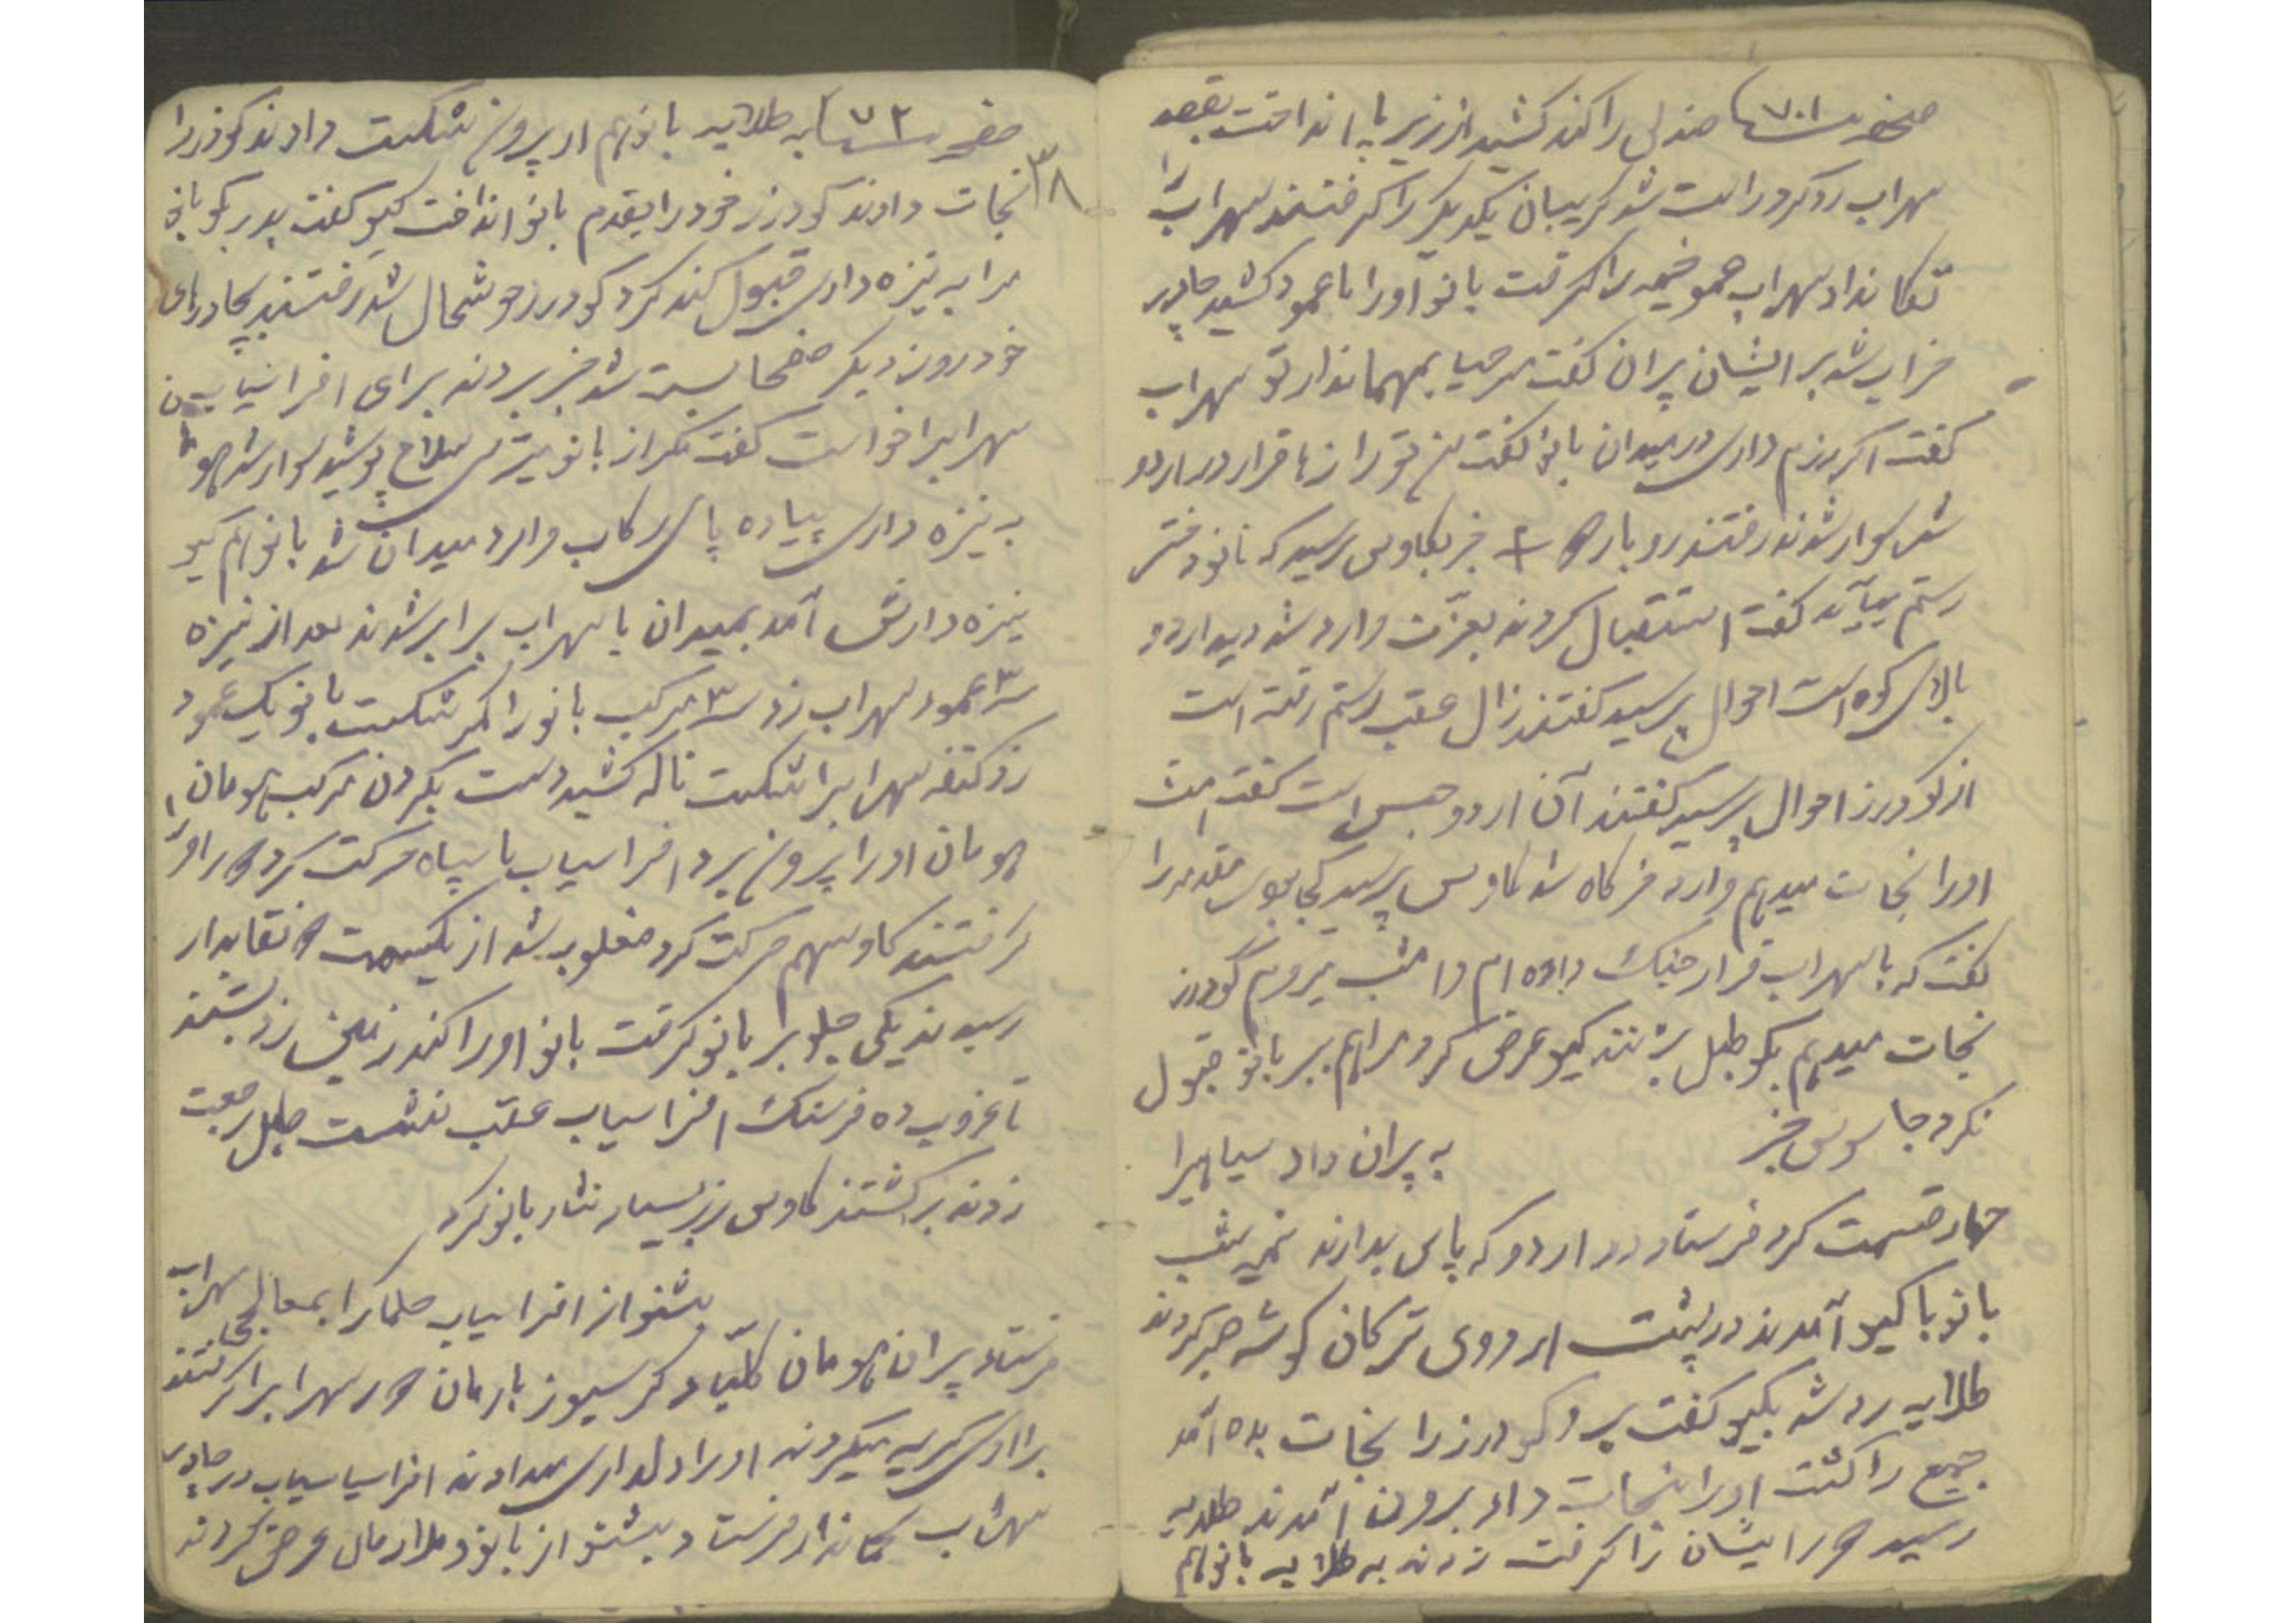 صندلی را کند کشید از زیر پا انداخت بقصد
سهراب رد کرد راست شد گریبان یکدیگر را گرفتند سهراب را
تکان داد سهراب عمود خیمه را گرفت بانو اورا با عمود کشید چادر
خراب شد بر ایشان پیران گفت مرحبا بمهماندار تو سهراب
گفت اگر رزم داری در میدان بانو گفت تو را قرار در
شد سوار شدند رفتند خبر بکاوس رسید که بانو دختر
رستم میآید گفت استقبال کردند بعزت وارد شد دید اردو
بالای کوه است احوال پرسید گفتند زال عقب رستم رفته است
از گودرز احوال پرسید گفتند آن اردو حبس است گفت امشب
اورا نجات میدهم وارد خرگاه شد کاوس پرسید کجا بودی مقدمه را
گفت که با سهراب قرار جنگ داده ام و امشب میروم گودرز
نجات میدهم بگو طبل بزنند گیو عرض کرد مرا هم ببر بانو قبول
نکرد جاسوس خبر به پیران داد سپاهیرا
چهار قسمت کرد فرستاد دور اردو که پاس بدارند نیمه شب
بانو با گیو آمدند در پشت اردوی ترکان گوشه صبر کردند
طلایه رد شد بگیو گفت برو گودرز را نجات بده آمد
جمیع را کشت اورا نجات داد برون آمدند طلایه
رسید دور ایشان را گرفت زدند به طلایه بانو هم
۳۸
به طلایه بانو هم از برون شکست دادند گودرز را
نجات دادند گودرز خود را بقدم بانو انداخت گیو گفت پدر بگو بانو
مرا به نیزه داری قبول کند کرد گودرز خوشحال شد رفتند بچادرهای
خود روز دیگر صف‌ها بسته شد خبر بردند برای افراسیاب
سهراب را خواست گفت مگر از بانو میترسی سلاح پوشید سوار شد
به نیزه داری پیاده پای رکاب وارد میدان شد بانو هم گیو
نیزه دارش آمد بمیدان با سهراب برابر شدند بعد از نیزه
۳ عمود سهراب زد ۳ مرکب بانو را کمر شکست بانو یک عمود
زد کتف سهراب را شکست ناله کشید دست بگردن مرکب هومان
هومان اورا برون برد افراسیاب با سپاه حرکت کرد دور اورا
گرفتند کاوس هم حرکت کرد مغلوبه شد از یکسمت نقابدار
رسیدند یکی جلو بر بانو گرفت بانو اورا کند زمین زد بستند
تا غروب ده فرسنگ افراسیاب عقب نشست طبل رجعت
زدند برگشتند کاوس زر بسیار نثار بانو کرد
بشنو از افراسیاب حکما را بمعالجه سهراب
فرستاد پیران هومان گرسیوز بارمان دور سهراب را گرفتند
برا اوی گریه میکردند اورا دلداری میدادند افراسیاب در چادر
سهراب فرستاد بشنو از بانو عرض کردند